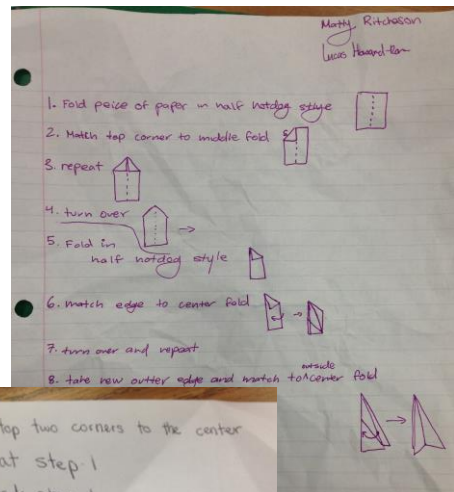 Matty Ritcheson
Lucas
1. Fold peice of paper in half hotdog style
2. Match top corner to middle fold
3. repeat
4. turn over
5. Fold in
half hotdog style
6. match edge to center fold
7. turn over and repeat
8. take new outter edge and match to outside center fold
top two corners to the center
at step 1